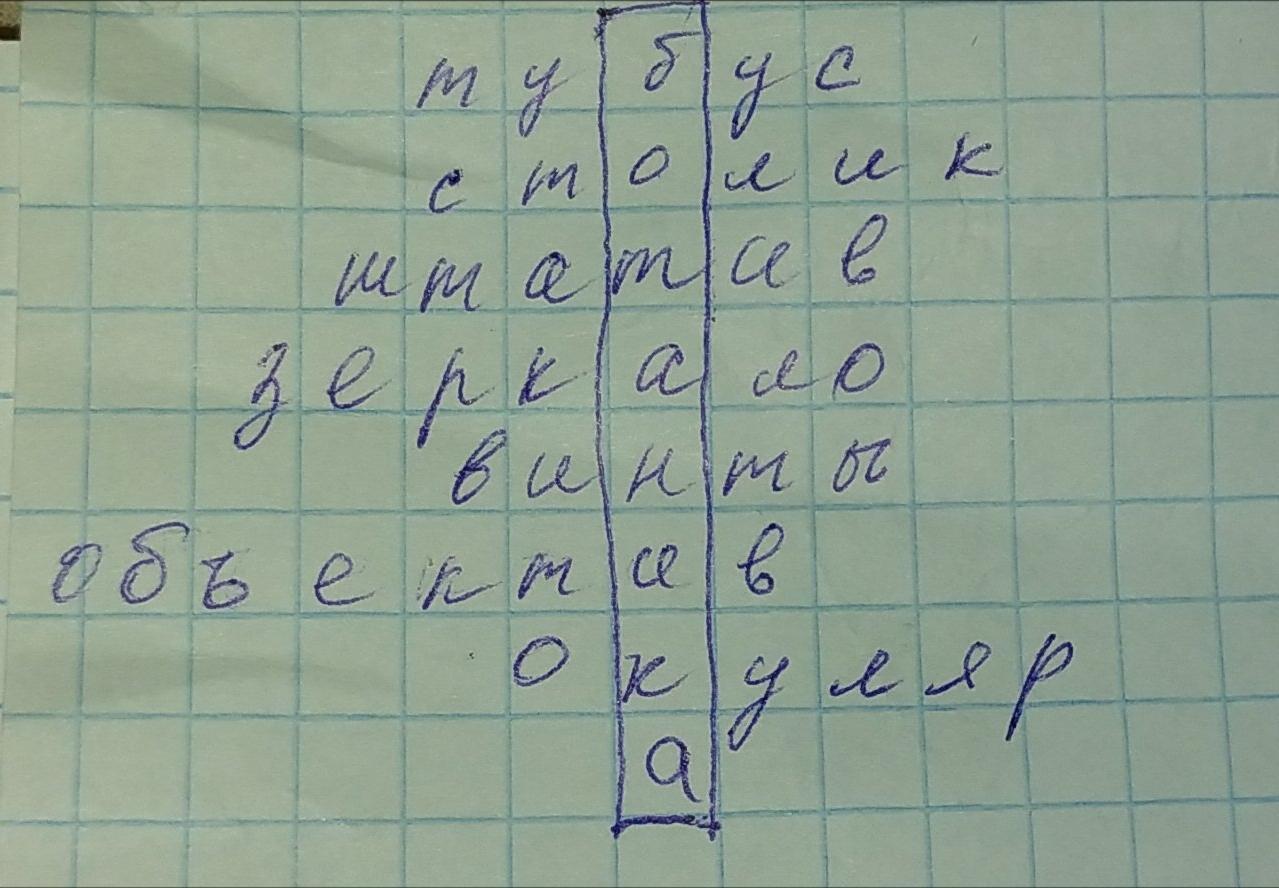 тубус
столик
штатив
зеркало
винты
объектив
окуляр
а